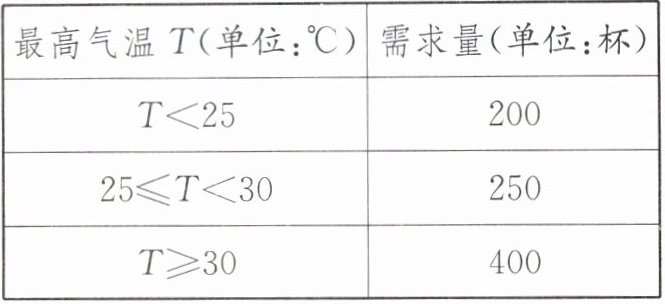 最高气温 T(单位:℃) 需求量(单位:杯)
T<25 200
25≤T<30 250
T≥30 400